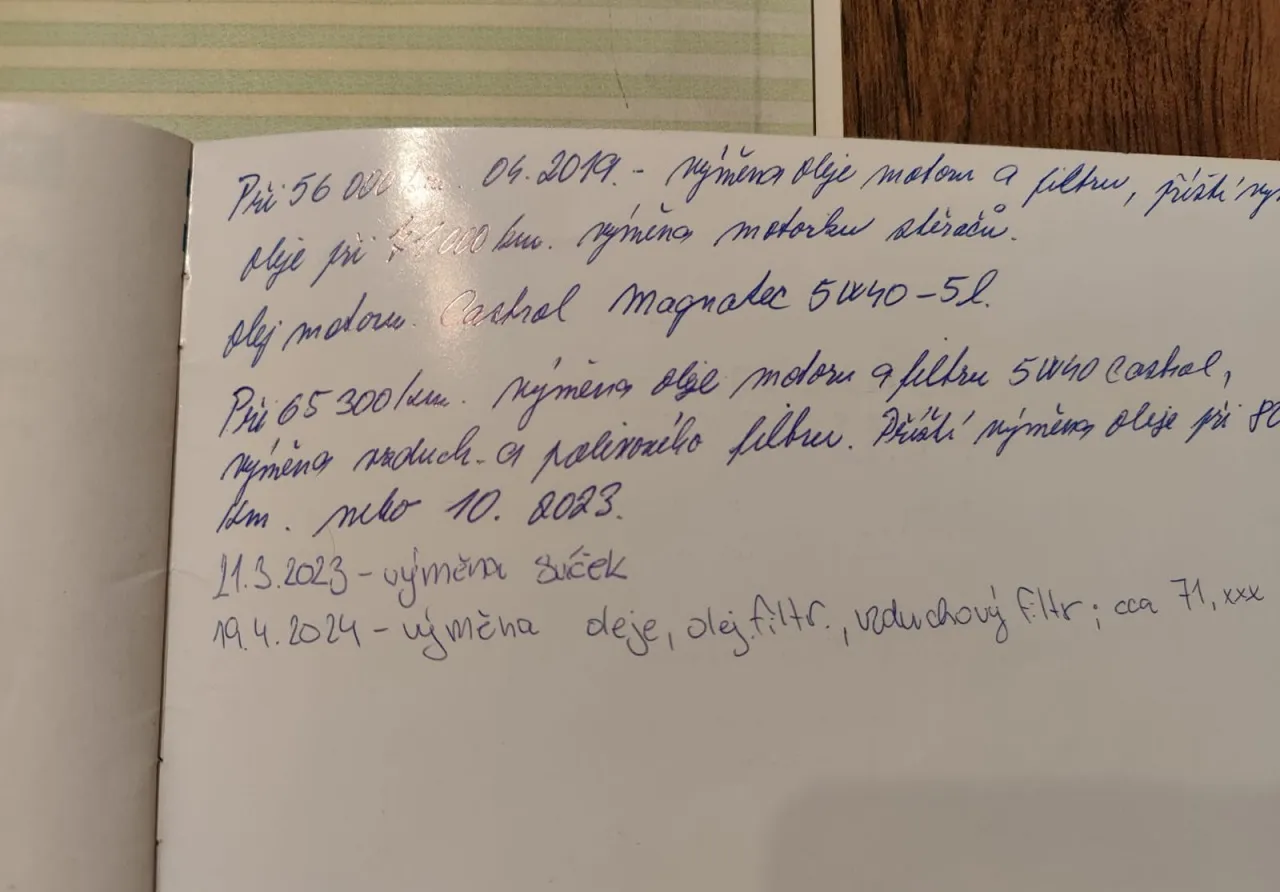 Při 56 000 km. 04.2019. - výměna oleje motoru a filtru, příští vým
oleje při 000 km. výměna motorku stěračů.
olej motoru. Castrol Magnatec 5W40 - 5l.
Při 65 300 km. výměna oleje motoru a filtru 5W40 Castrol,
výměna vzduch. a palivového filtru. Příští výměna oleje při 80
km. nebo 10. 2023.
21.3.2023 - výměna svíček
19.4.2024 - výměna oleje, olej.filtr., vzduchový filtr; cca 71,xxx